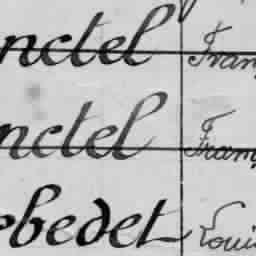 nctel Fran
nctel Fram
ebedet Loui